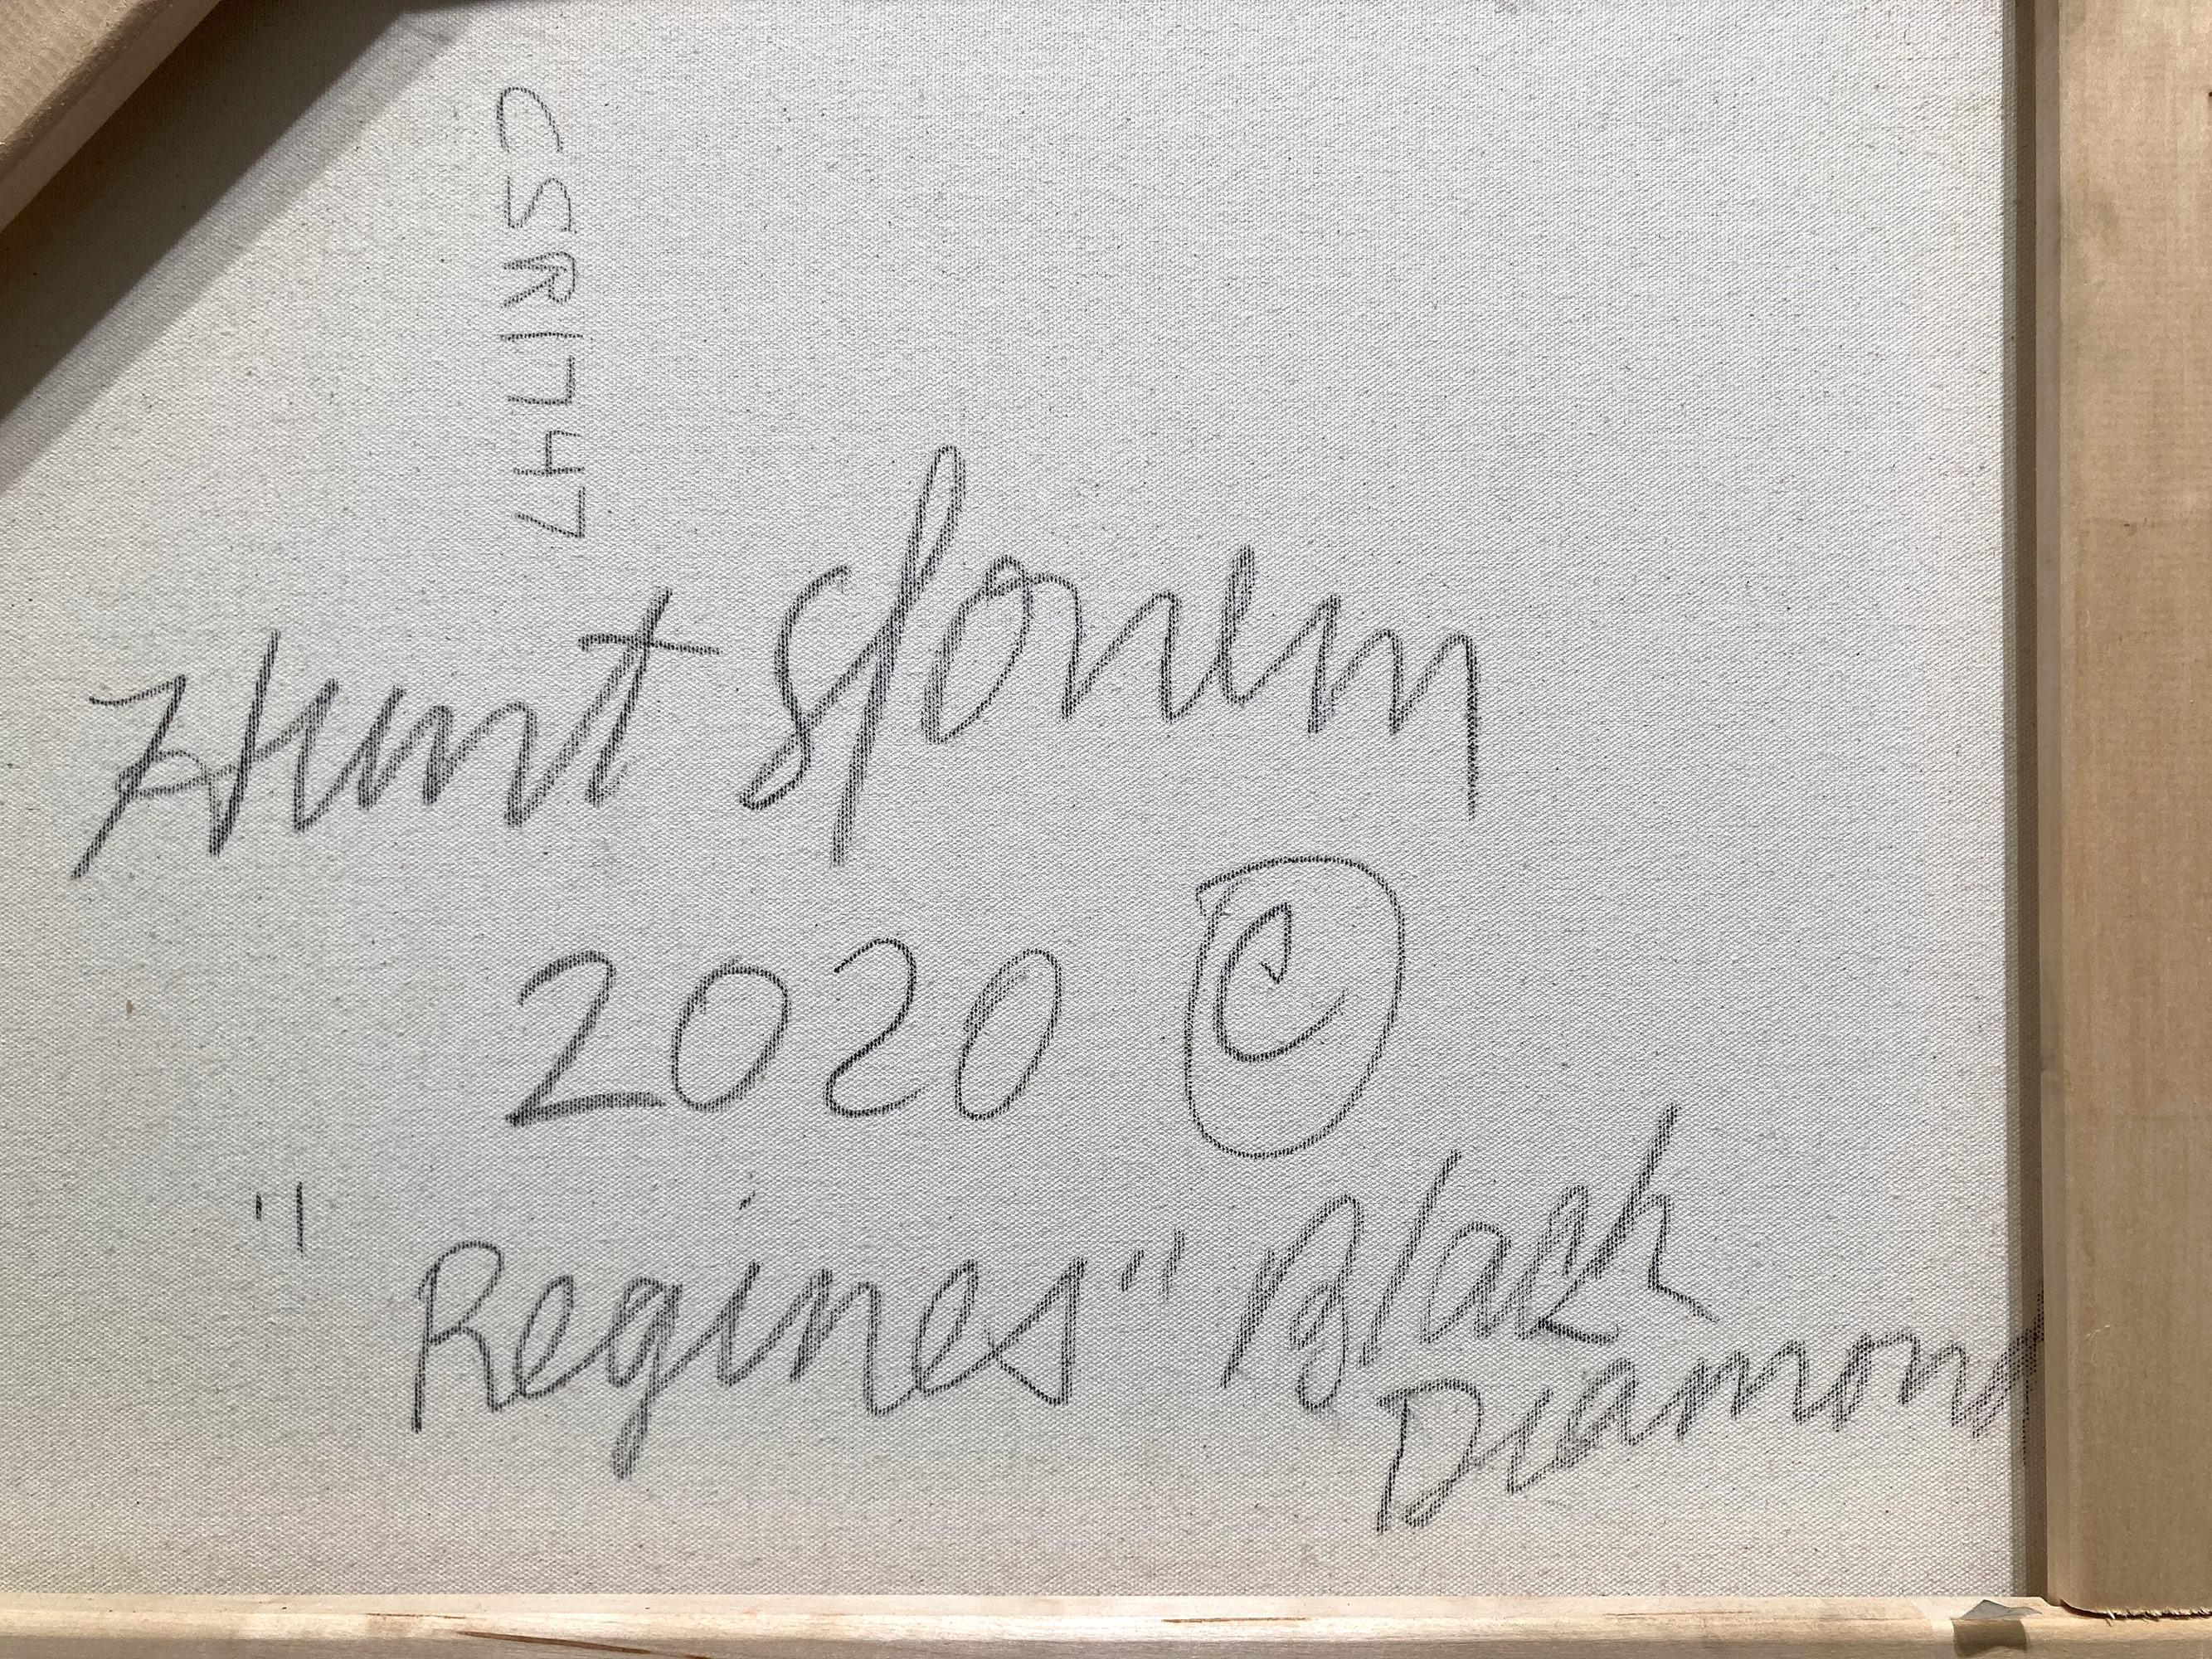 CSR1747
Hunt Slonem
2020 ©
"Regines" Black
Diamond